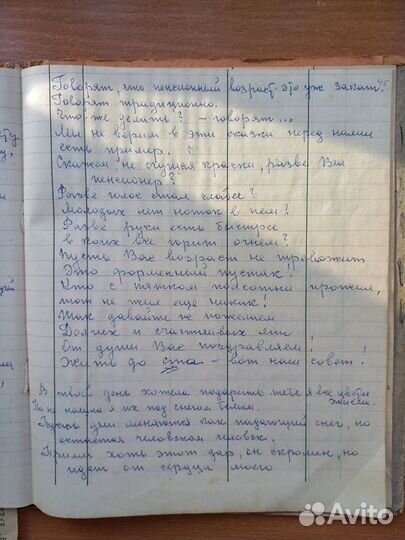 45
Говорят, что пенсионный возраст-это уж закат.
Говорят традиционно.
Что-же делать? - говорят...
Мы не верим в эти сказки перед нами
есть пример.
Скажем не сгущая краски, разве Вы
пенсионер?
Разве голос стал слабее?
Молодых нет ноток в нем?
Разве руки есть быстрее
в коих все горит огнем?
Пусть Вас возраст не тревожит
Это форменный пустяк!
Кто с пятком полсотни прожил,
тот не жил еще никак!
Так давайте же пожелаем
Долгих и счастливых лет
От души Вас поздравляем!
Жить до ста - вот наш совет!
В твой день хотела подарить тебе я все цветы
земли.
Но не нашла я их под снегом белым.
Пусть дни меняются как падающий снег, но
останется человеком человек.
Прими хоть этот дар, он скромен, но
идет от сердца моего
Avito